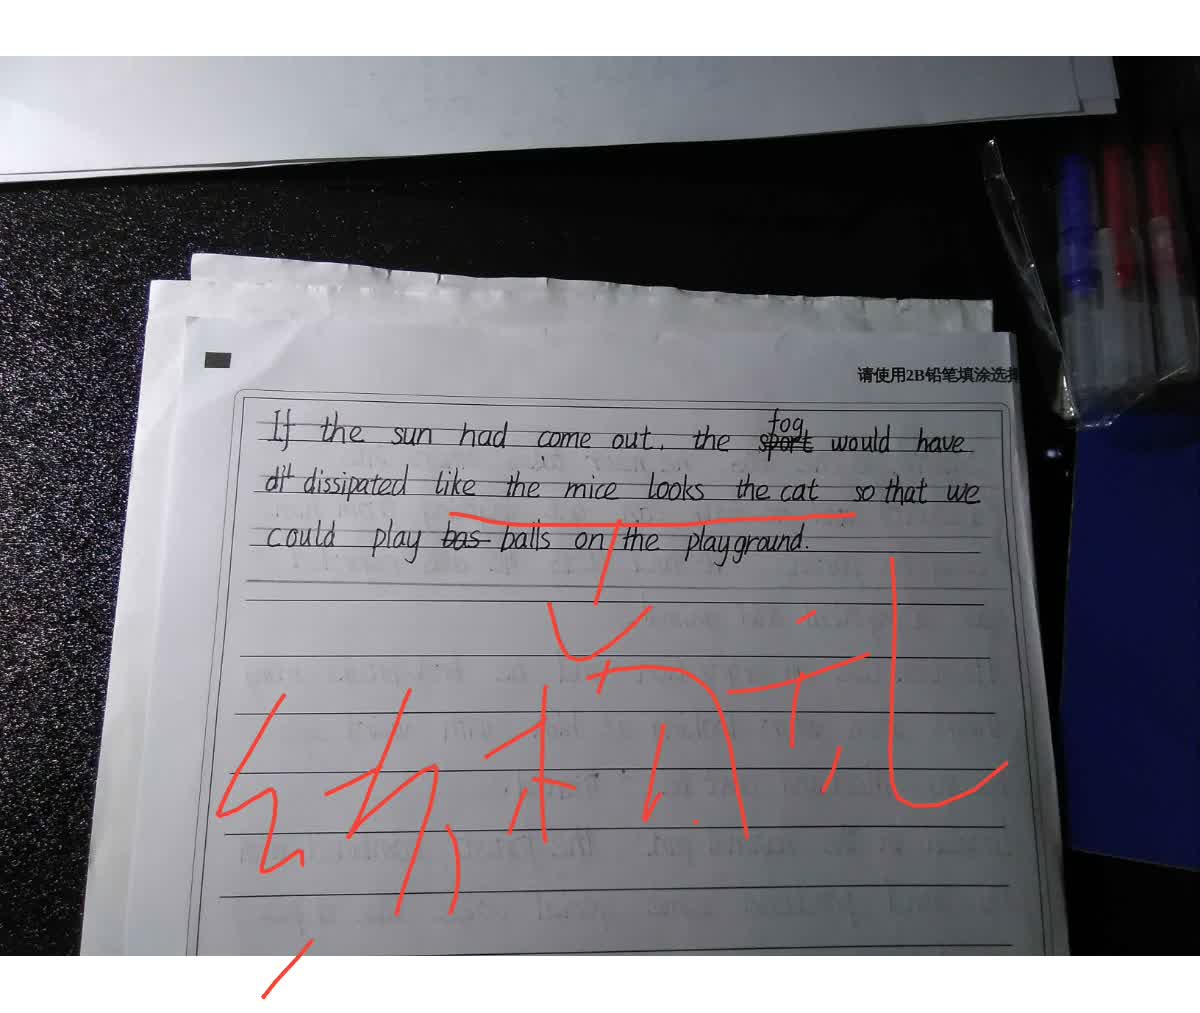 请使用2B铅笔填涂选择
fog
If the sun had come out, the sport would have
dit dissipated like the mice looks the cat so that we
could play bas balls on the playground.